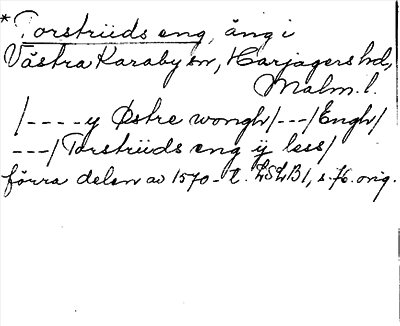 *Torstriids eng, äng i
Västra Karaby sn, Harjagers hd,
Malm. l.
/----y Østre wongh/---/Engh/
---/Torstriids eng ÿ less/
förra delen av 1570-t. LSLB1, s.76. orig.